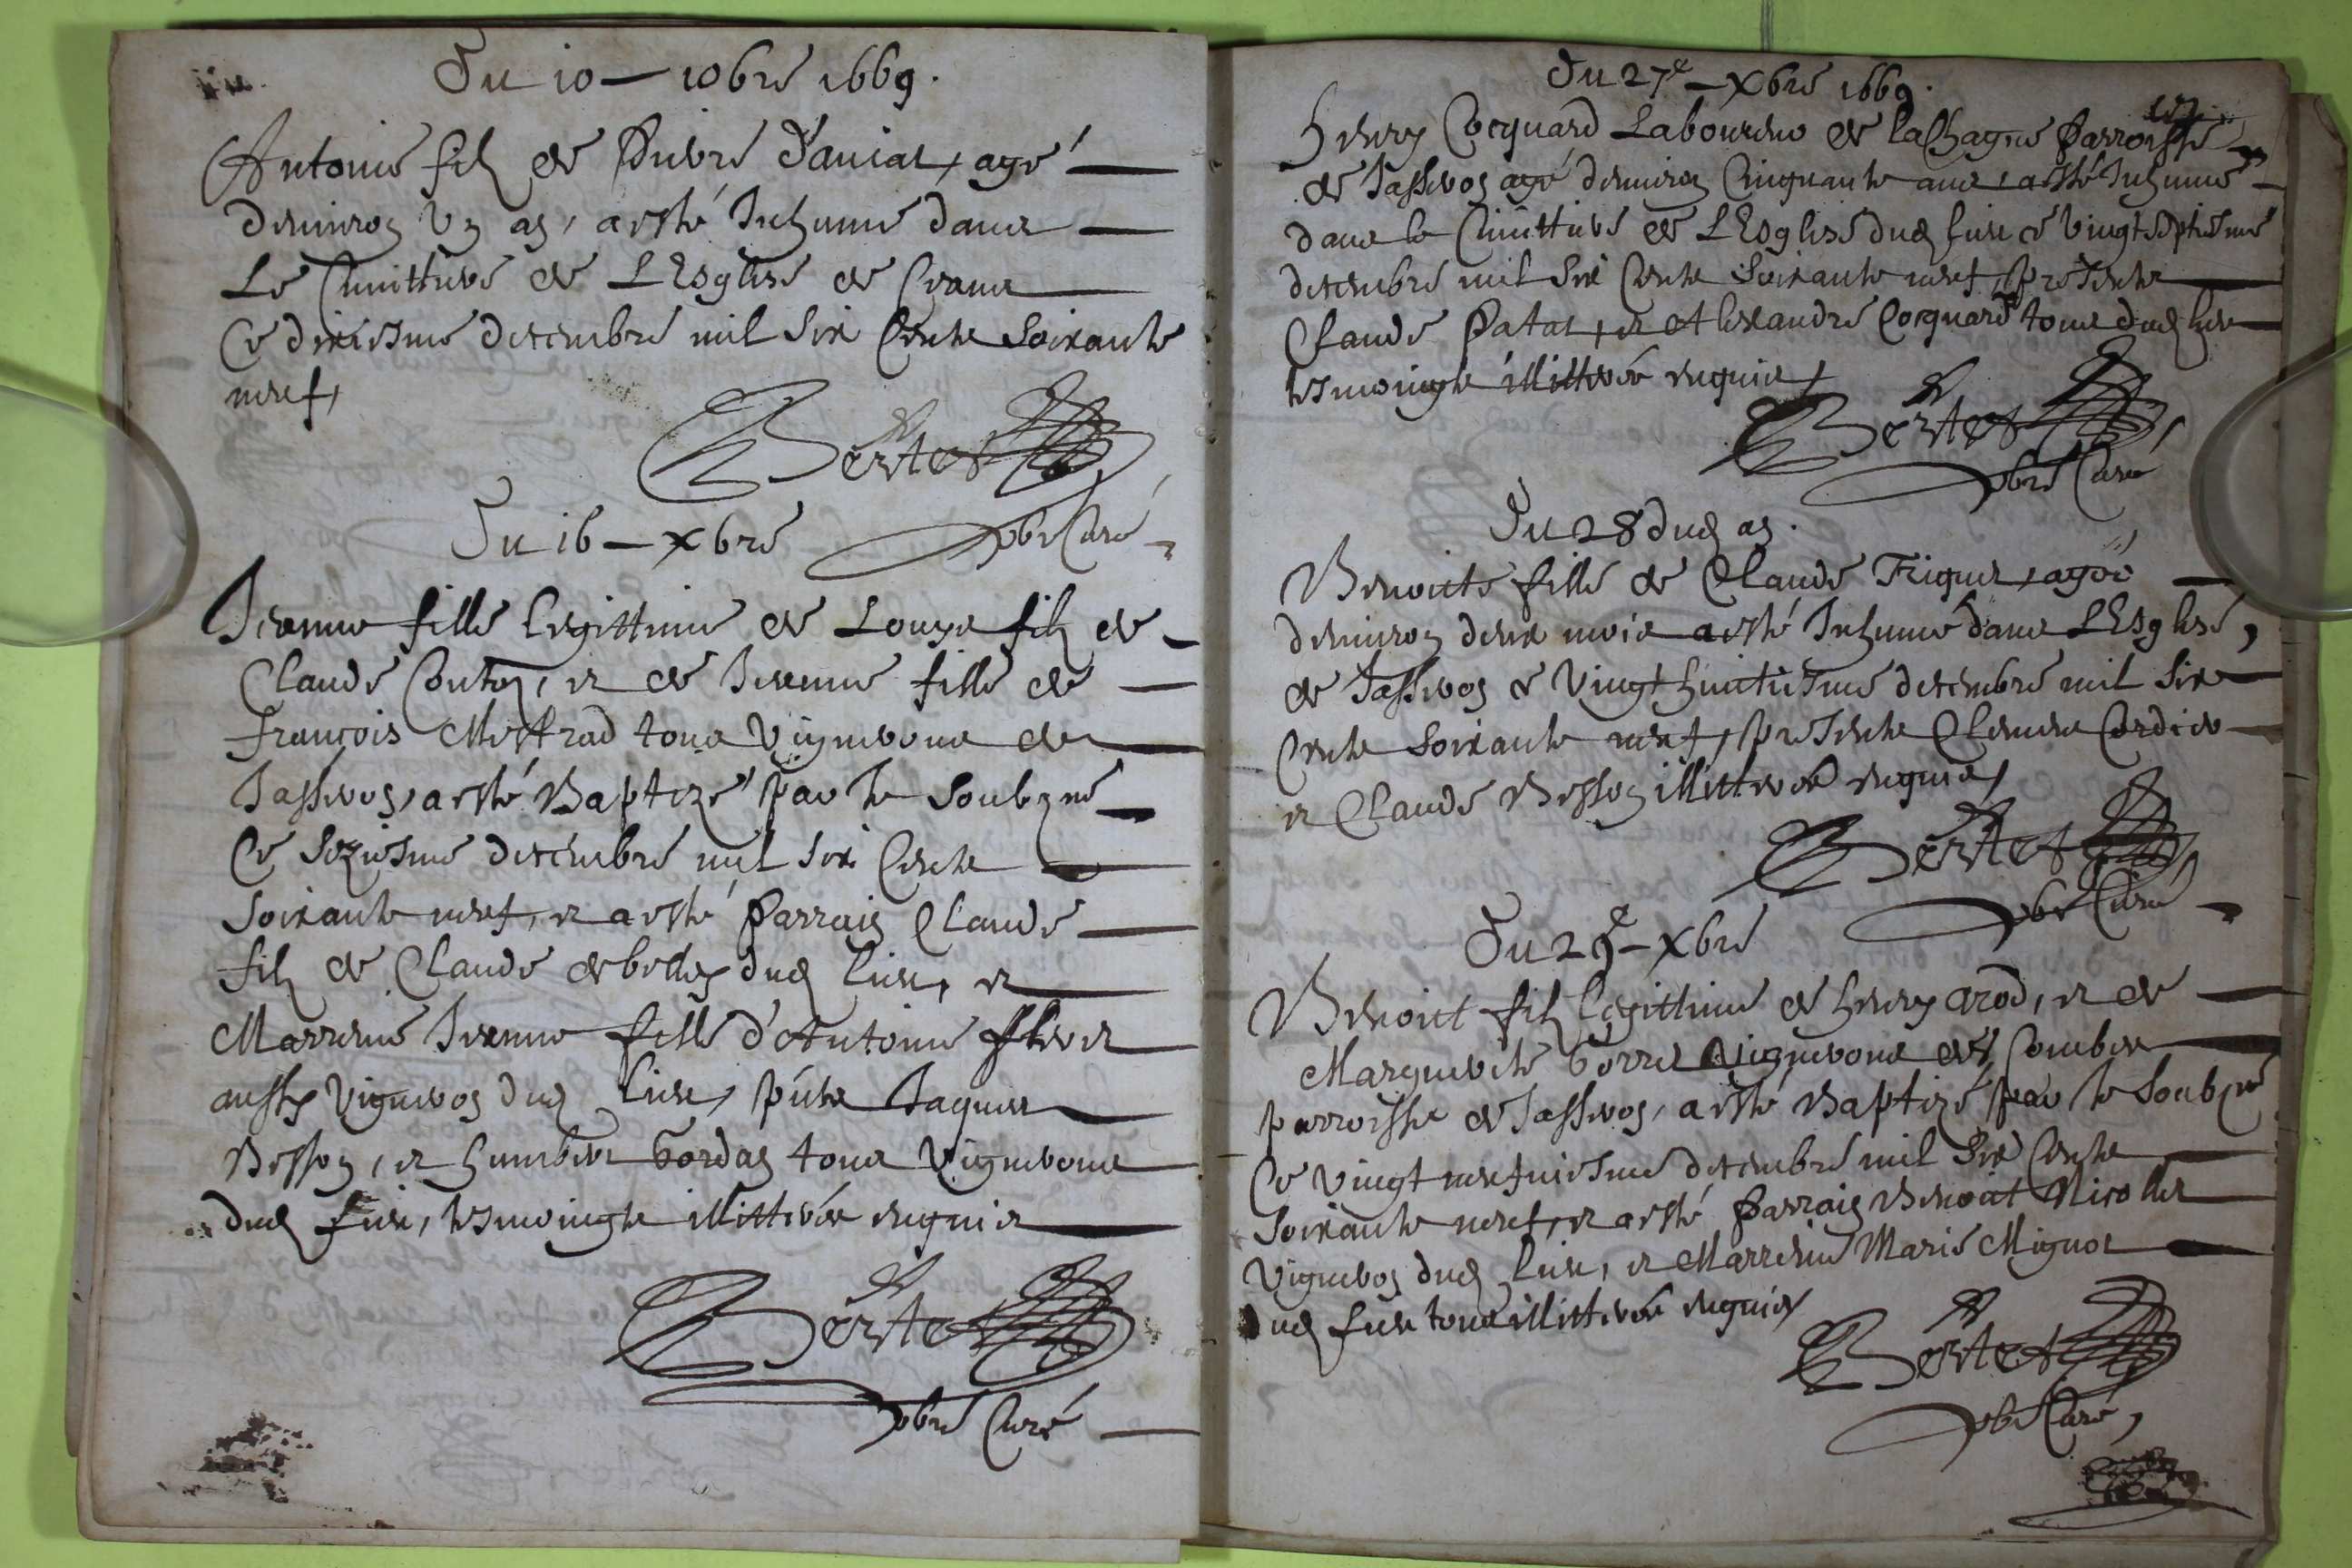 Du 10 – 10bre 1669.
Antoine filz de Pierre Daniat, agé
denuiron vn an, a esté Inhumé dans
Le Cimittiere de L'Esglise de
Ce dixiesme decembre mil Six Cents Soixante
neuf,
Bertet
pbre Curé
Du 16 – xbre
Jeanne fille legittime de Louys filz de
Claude Couton, et de Jeanne fille de
François Mestrad tous Vignerons de
Jasseron, a esté Baptizé par le Soubzné
Ce Seziesme decembre mil Six Cents
Soixante neuf, et a esté Parrain Claude
filz de Claude dud lieu, et
Marrene Jeanne fille d'Antoine
aussy Vigneron dud lieu, pnts Jaques
Besson, et humbert Gordan tous Vignerons
dud lieu, tesmoingts illitterés enquis
Bertet
pbre Curé
Du 27e – xbre 1669.
Henry Cocquard Laboureur de laChagne Parroisse
de Jasseron agé denuiron Cinquante ans, a esté Inhumé
dans le Cimittiere de L'Esglise dud lieu ce Vingtseptiesme
decembre mil Six Cents Soixante neuf, presents
Claude Patat, et Alexandre Cocquard tous dud lieu
tesmoingts illitterés enquis,
Bertet
pbre Curé
Du 28 dud an.
Benoiste fille de Claude Friquet, agée
denuiron deux mois a esté Inhumé dans L'Esglise,
de Jasseron ce Vingt huictiesme decembre mil Six
Cents Soixante neuf, presents Clement Cordier
et Claude Besson illitterés enquis,
Bertet
pbre Curé
Du 29e – xbre
Benoict filz legittime de henry arod, et de
Marguerite Gorret Vignerons des Combes
parroisse de Jasseron, a esté Baptizé par le Soubzné
Ce vingt neufuiesme decembre mil Six Cents
Soixante neuf, et a esté Parrain Benoict Nicollet
Vigneron dud lieu, et Marrene Marie Mignot
dud lieu tous illitterés enquis,
Bertet
pbre Curé,